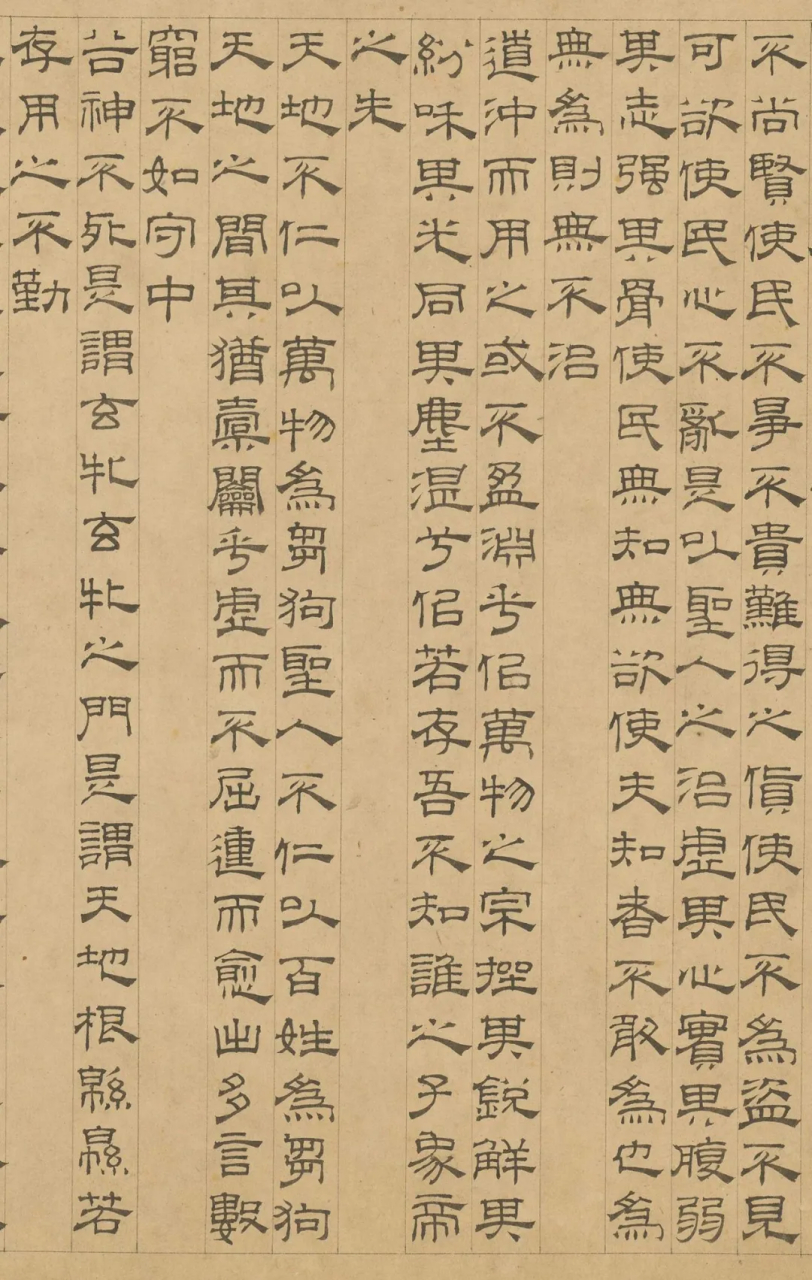 不尚賢使民不爭不貴難得之貨使民不為盜不見
可欲使民心不亂是以聖人之治虛其心實其腹弱
其志强其骨使民無知無欲使夫知者不敢為也為
無為則無不治
道沖而用之或不盈淵乎佀萬物之宗挫其銳解其
紛咊其光同其塵湛兮佀若存吾不知誰之子象帝
之先
天地不仁以萬物為芻狗聖人不仁以百姓為芻狗
天地之間其猶橐𨷲乎虛而不屈𨔝而愈出多言數
窮不如守中
谷神不死是謂玄牝玄牝之門是謂天地根緜緜若
存用之不勤